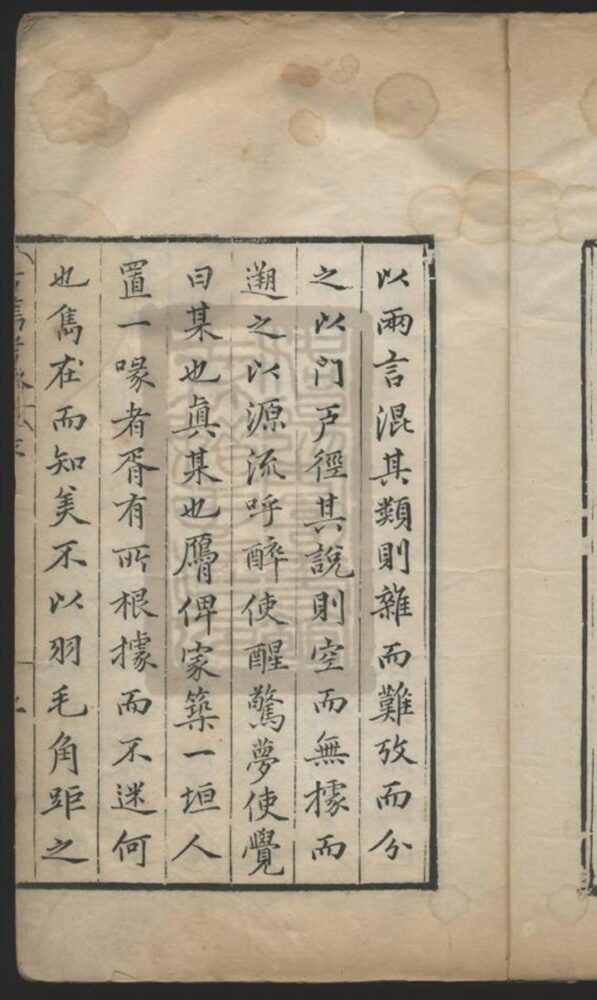 以兩言混其類則雜而難攷而分
之以門戸徑其說則空而無據而
遡之以源流呼醉使醒驚夢使覺
曰某也眞某也鴈俾家築一垣人
置一喙者胥有所根據而不迷何
也雋在而知美不以羽毛角距之